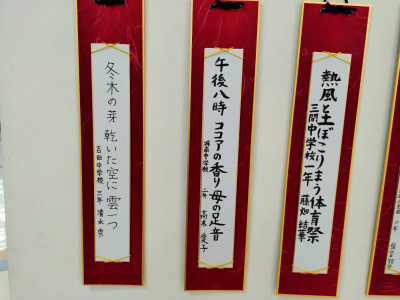 熱風と土ぼこりまう体育祭
三間中学校一年 藤畑 結華
午後八時 ココアの香り母の足音
城南中学校 二年 高木 愛子
冬木の芽乾いた空に雲一つ
吉田中学校 三年 清水